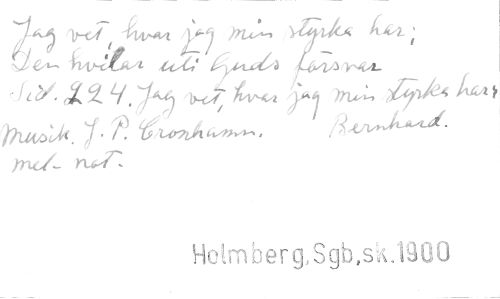 Jag vet, hvar jag min styrka har;
Den hvilar uti Guds försvar
Sid. 224. Jag vet, hvar jag min styrka har,
Musik. J. P. Cronhamn. Bernhard.
mel- not.
Holmberg,Sgb,sk.1900